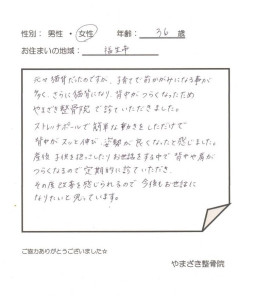 性別： 男性 ・ 女性 年齢： 36 歳
お住まいの地域： 福生市
元々猫背だったのですが、子育てで前かがみになる事が
多く、さらに猫背になり、背中がつらくなったため
やまざき整骨院で診ていただきました。
ストレッチポールで簡単な動きをしただけで
背中がスッと伸び、姿勢が良くなったと感じました。
産後、子供を抱っこしたりお世話をする中で背中や肩が
つらくなるので定期的に診ていただき、
その度改善を感じられるので今後もお世話に
なりたいと思っています。
ご協力ありがとうございました☆
やまざき整骨院